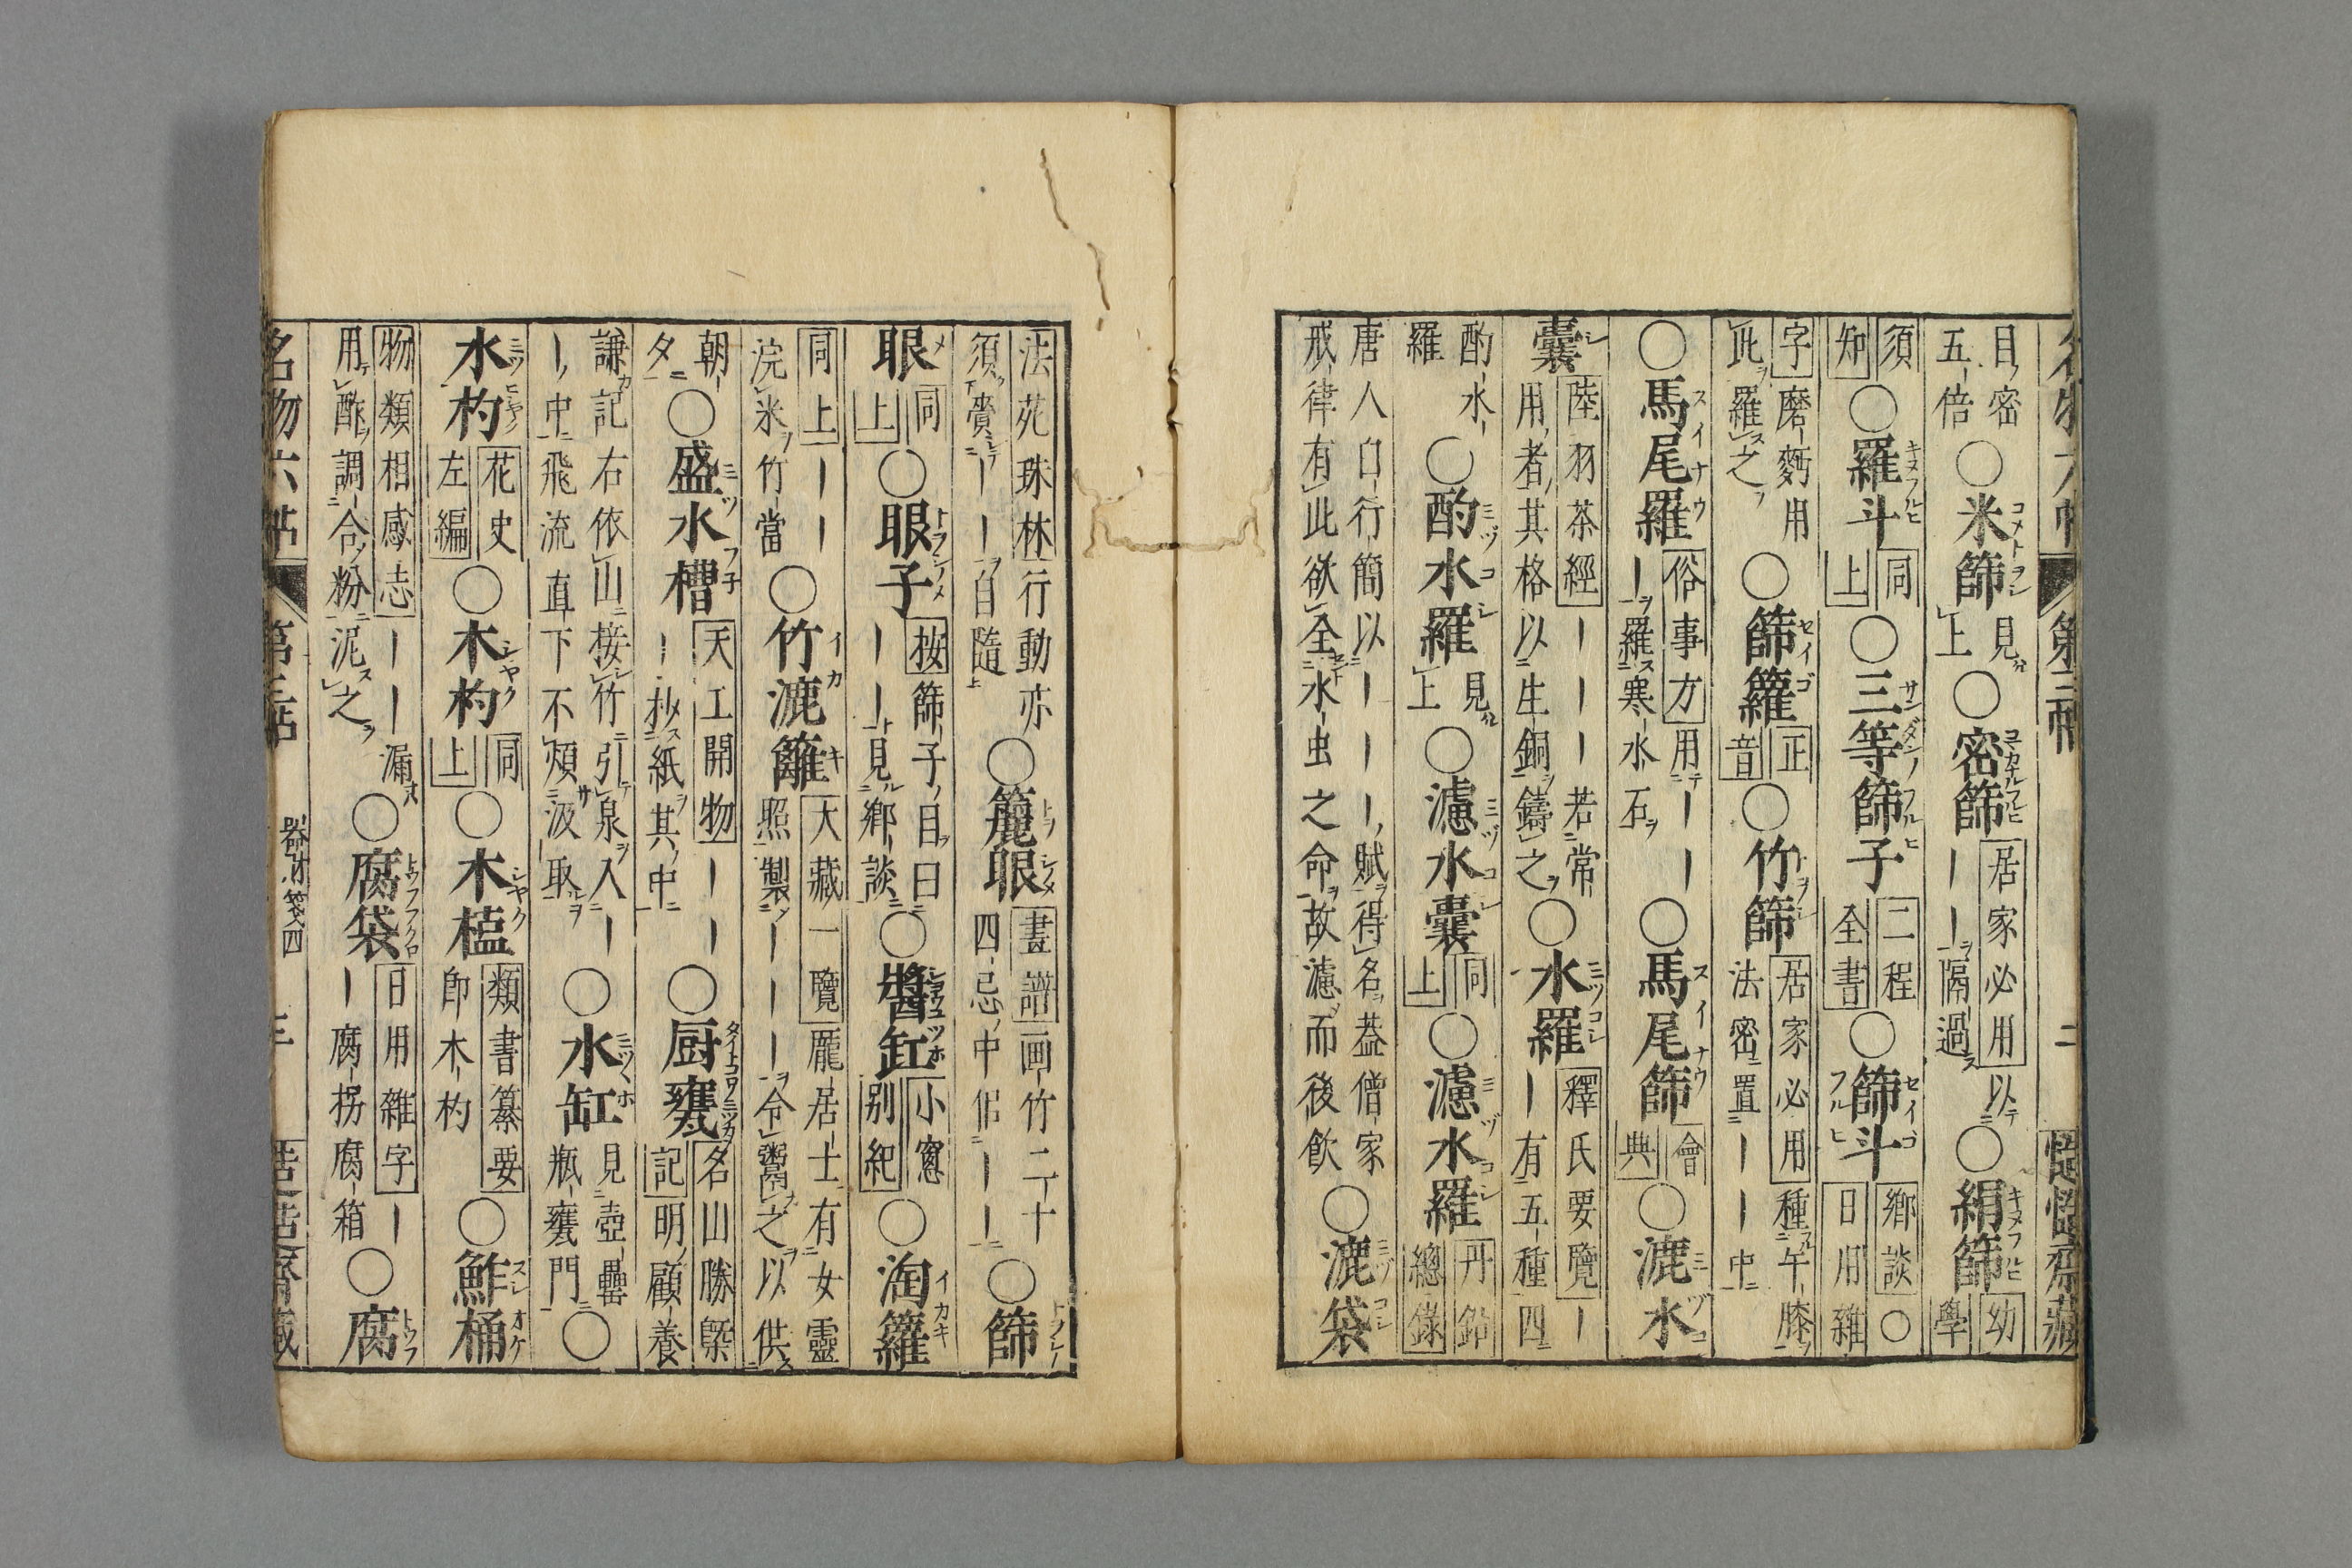 名物六帖 第二帖 二 慥慥齋藏
目密五倍○米篩見上○密篩居家必用以――隔過○絹篩幼學
須知○羅斗同上○三等篩子二程全書○篩斗鄉談○日用雜
字磨麪用此羅之○篩籮正音○竹篩居家必用種午膝法密置――中
○馬尾羅俗事方用――羅寒水石○馬尾篩會典○漉水
囊陸羽茶經―――若常用者其格以生銅鑄之○水羅釋氏要覽―有五種四
酌水羅○酌水羅見上○濾水囊同上○濾水羅丹鉛總錄
唐人白行簡以―――賦得名蓋僧家戒律有此欲全水虫之命故濾而後飲○漉袋
法苑珠林行動亦須賷――自隨○籠眼畫譜画竹二十四忌中侶――○篩
眼同上○眼子按篩子目曰――見鄉談○醬缸小窻别紀○淘籮
同上――浣米竹當○竹漉籬大藏一覽龐居士有女靈照製―――令鬻之以供
朝夕○盛水槽天工開物―――抄紙其中○厨甕名山勝槩記明顧養
謙記右依山接竹引泉入――中飛流直下不煩汲取○水缸見壺罍瓶甕門○
水杓花史左編○木杓同上○木榼類書纂要卽木杓○鮓桶
物類相感志――漏用酢調合粉泥之○腐袋日用雜字――腐拐腐箱○腐
名物六帖 器財箋四 三